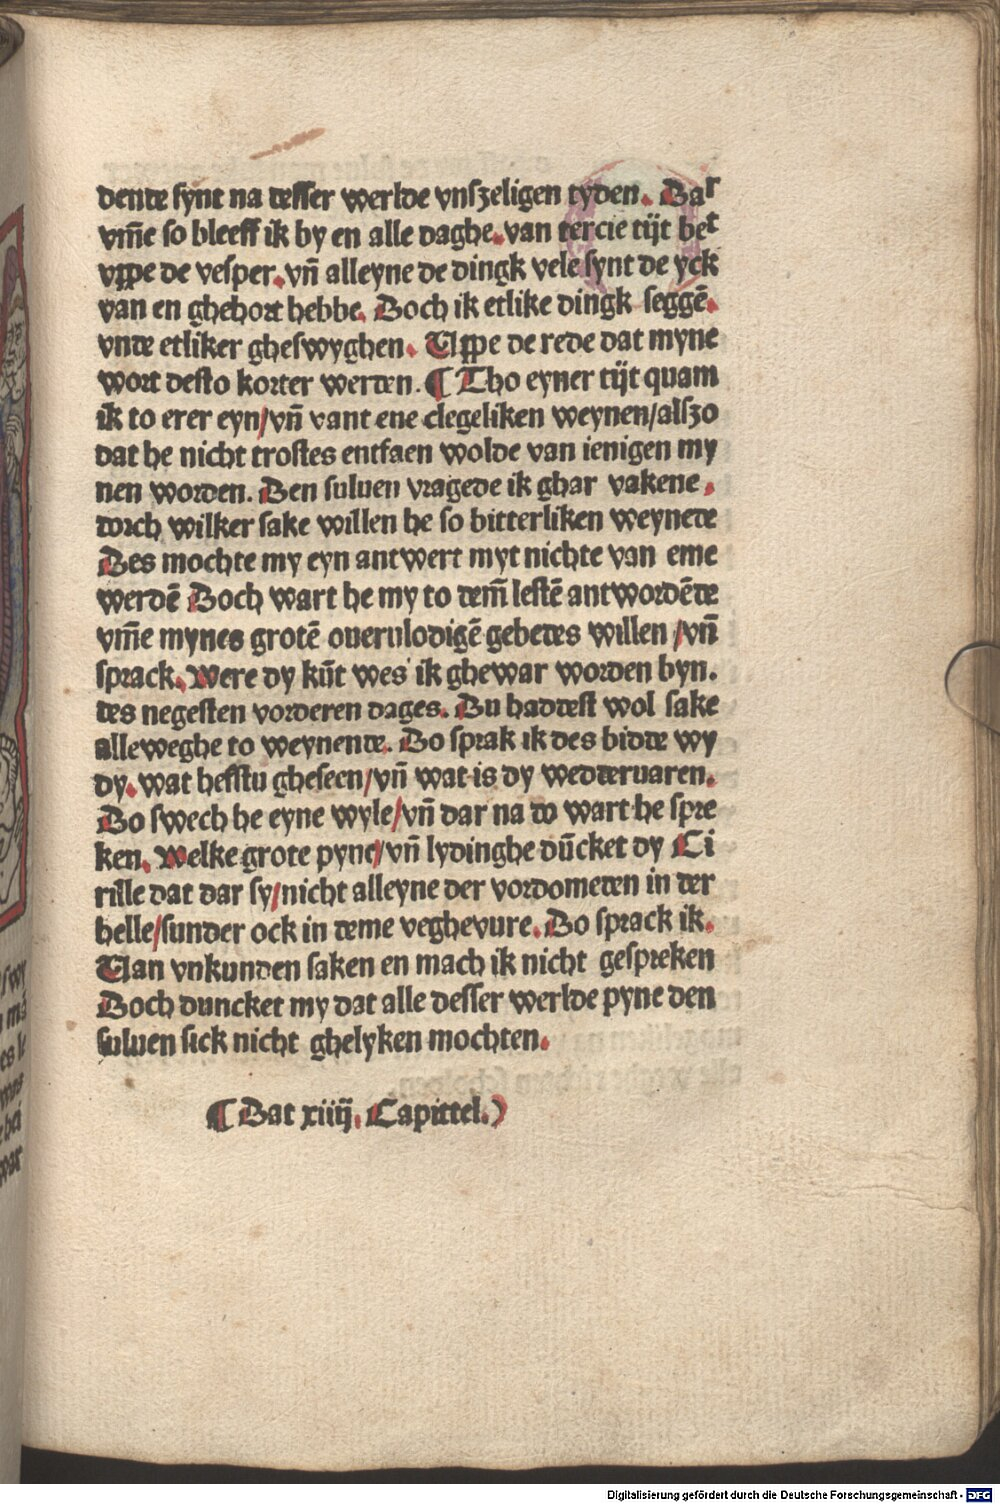 dende synt na desser werlde vnszeligen tyden. Dar
vm̃e so bleeff ik by en alle daghe. van tercie tijt bet
vppe de vesper. vñ alleyne de dingk vele synt de yck
van en ghehort hebbe. Doch ik etlike dingk seggē.
vnde etliker gheswyghen. Uppe de rede dat myne
wort desto korter werden. ¶ Tho eyner tijt quam
ik to erer eyn/vñ vant ene clegeliken weynen/alszo
dat he nicht trostes entfaen wolde van ienigen my
nen worden. Den suluen vragede ik ghar vakene.
dorch wilker sake willen he so bitterliken weynete
Des mochte my eyn antwert myt nichte van eme
werdē Doch wart he my to dem̃ lestē antwordēde
vm̃e mynes grotē ouerulodigē gebedes willen /vñ
sprack. Were dy kūt wes ik ghewar worden byn.
des negesten vorderen dages. Du haddest wol sake
alleweghe to weynende. Do sprak ik des bidde wy
dy. wat hefftu gheseen/vñ wat is dy wedderuaren.
Do swech he eyne wyle/vñ dar na do wart he spre
ken. Welke grote pyne/vñ lydinghe dūcket dy Ci
rille dat dar sy/nicht alleyne der vordomeden in der
helle/sunder ock in deme veghevure. Do sprack ik.
Uan vnkunden saken en mach ik nicht gespreken
Doch duncket my dat alle desser werlde pyne den
suluen sick nicht ghelyken mochten.
¶ Dat xiiij. Capittel.)
Digitalisierung gefördert durch die Deutsche Forschungsgemeinschaft - DFG